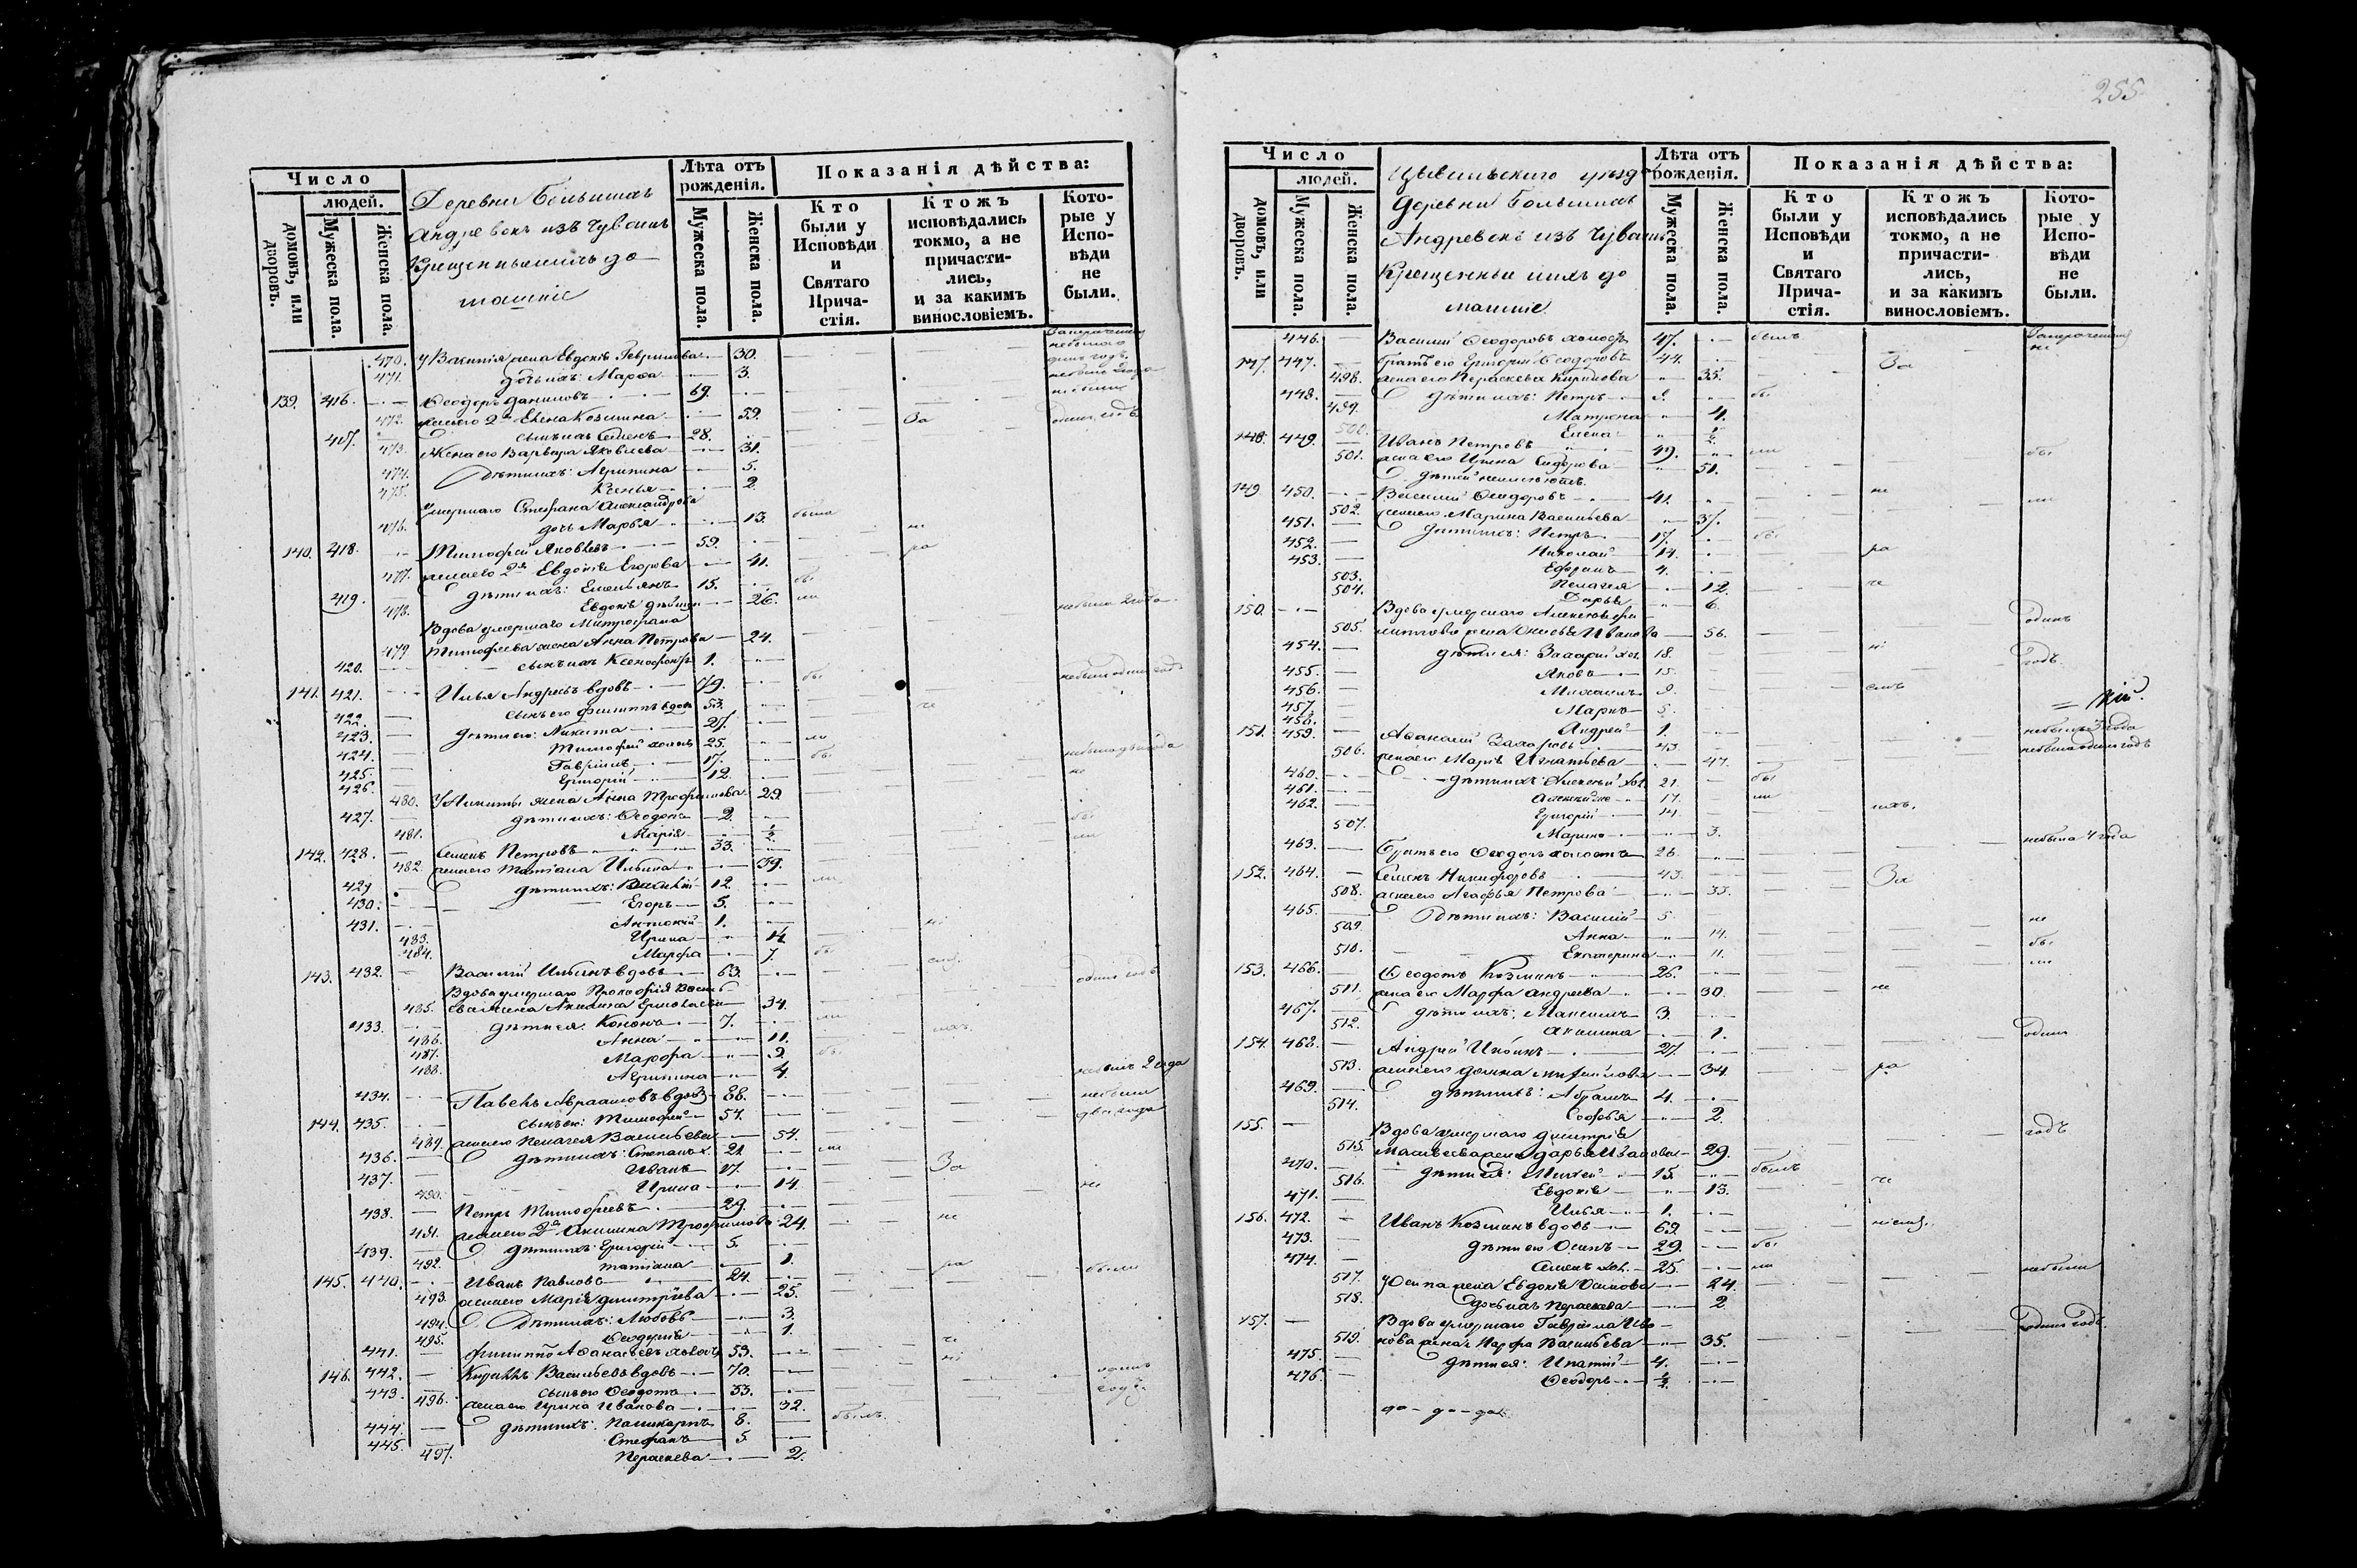 Число
людей.
домовъ, или дворовъ.
Мужеска пола.
Женска пола.
Деревни Большихъ
Андреевокъ изъ Чувашъ
Крещенныхъ
Лѣта отъ рожденія.
Мужеска пола.
Женска пола.
Показанія дѣйства:
Кто были у Исповѣди и Святаго Прича-стія.
Ктожъ исповѣдались токмо, а не причасти-лись, и за какимъ винословіемъ.
Кото-рые у Испо-вѣди не были.
470. жена Евдокія 30.
471. дочь ихъ: Марѳа 3.
139. 416. Ѳеодоръ Даниловъ 69.
472. жена его 2я Елена Козмина 59.
417. сынъ ихъ Семенъ 28.
473. Жена его Варвара Яковлева 31.
474. Дѣти ихъ: Агрипина 5.
475. Ксенья 2.
умершаго Стефана Александрова
476. дочь Марья 13. была
140. 418. Тимофей Яковлевъ 59.
477. жена его 2я Евдокія Егорова 41.
419. дѣти ихъ: Емельянъ 15.
478. Евдокія 26.
Вдова умершаго Митрофана
479. Тимофеева жена Анна Петрова 24.
420. сынъ ихъ Ксенофонтъ 1.
141. 421. Илья Андреевъ вдовъ 79.
422. сынъ его Филиппъ вдовъ 53.
423. дѣти его: Никита 27.
424. Тимофей 25.
425. Гаврилъ 17.
426. Григорій 12.
480. У Никиты жена Анна Трофимова 29.
427. дѣти ихъ: Ѳеодотъ 2.
481. Марія ½
142. 428. Семенъ Петровъ 33.
482. жена его Татіана Ильина 39.
429. дѣти ихъ: Василій 12.
430. Егоръ 5.
431. Антоній 1.
483. Ирина 14.
484. Марфа 7.
143. 432. Василій Ильинъ вдовъ 63.
Вдова умершаго Прокофія Василь-
485. ева жена Акилина 34.
433. дѣти ея: Кононъ 7.
486. Анна 11.
487. Марфа 9.
488. Агрипина 4. небылъ 2 года
434. Павелъ Авраамовъ вдовъ 88.
144. 435. сынъ его: Тимофей 57.
489. жена его Пелагея Васильева 54.
436. дѣти ихъ: Степанъ х. 21.
437. Иванъ 17.
490. Ирина 14.
438. Петръ Тимофеевъ 29.
491. жена его 2я Акилина Трофимова 24.
439. дѣти ихъ: Григорій 5.
492. Татіана 1.
145. 440. Иванъ Павловъ 24. были
493. жена его Марія Димитріева 25.
494. Дѣти ихъ: Любовь 3.
495. Ѳеодулія 1.
441. Филиппъ Аѳанасьевъ холостъ 53.
146. 442. Кириллъ Васильевъ вдовъ 70.
443. сынъ его Ѳеодотъ 33.
496. жена его Ирина Иванова 32.
444. дѣти ихъ: Поликарпъ 8.
445. Стефанъ 5.
497. Параскева 2.
255
Число
людей.
домовъ, или дворовъ.
Мужеска пола.
Женска пола.
Цывильскаго уѣзда
Деревни Большихъ
Андреевокъ изъ Чувашъ
Крещенныхъ
Лѣта отъ рожденія.
Мужеска пола.
Женска пола.
Показанія дѣйства:
Кто были у Исповѣди и Святаго Прича-стія.
Ктожъ исповѣдались токмо, а не причасти-лись, и за какимъ винословіемъ.
Кото-рые у Испо-вѣди не были.
446. Василій Ѳеодоровъ холостъ 47. былъ
147. 447. Братъ его Григорій Ѳеодоровъ 44. За
498. жена его Параскева Кирилова 35.
448. дѣти ихъ: Петръ 9. бы
499. Матрена 4.
500. Елена ½
148. 449. Иванъ Петровъ 49. ли
501. жена его Ирина Сидорова 51. бы
дѣтей неимѣютъ.
149. 450. Василій Ѳеодоровъ 41. не
502. жена его Марина Васильева 37. ли
451. дѣти ихъ: Петръ 17. бы
452. Николай 14. ра
453. Ефремъ 4.
503. Пелагея 12.
504. Дарья 6.
150. Вдова умершаго Алексея
505. жена Иванова 56. одинъ
454. дѣти ея: Захарій хол. 18.
455. Яковъ 15. годъ
456. Михаилъ 9.
457. Маркъ 5.
458. Андрей 1.
151. 459. Аѳанасій Захаровъ 43.
506. жена его Марія Игнатьева 47.
460. дѣти ихъ: Алексей хол. 21. бы
461. 17. ли
462. Григорій 14.
507. Марина 3.
463. Братъ его Ѳеодоръ холостъ 26. небылъ 4 года
152. 464. Семенъ Никифоровъ 43. За
508. жена его Агафья Петрова 35.
465. Дѣти ихъ: Василій 5. не
509. Анна 14. бы
510. Екатерина 11. ли
153. 466. Ѳеодотъ Козминъ 26.
511. жена его Марфа Андреева 30. не
467. дѣти ихъ: Максимъ 3.
512. Акилина 1.
154. 468. Андрей Ильинъ 27.
513. жена его Домна Михайлова 34. ра
469. дѣти ихъ: Абрамъ 4.
514. Софья 2.
155. Вдова умершаго Димитрія
515. Матвеева жена Дарья Иванова 29. годъ
470. дѣти ея: Михей 15. былъ
516. Евдокія 13.
471. Илья 1.
156. 472. Иванъ Козминъ вдовъ 69.
473. дѣти его Осипъ 29. бы
474. Семенъ хол. 25. ли
517. У Осипа жена Евдокія Осипова 24. небыли
518. дочь ихъ Параскева 2.
157. Вдова умершаго Гавріила Ива-
519. нова жена Марфа Васильева 35. одинъ годъ.
475. дѣти ея: Ипатій 4.
476. Ѳеодоръ ½